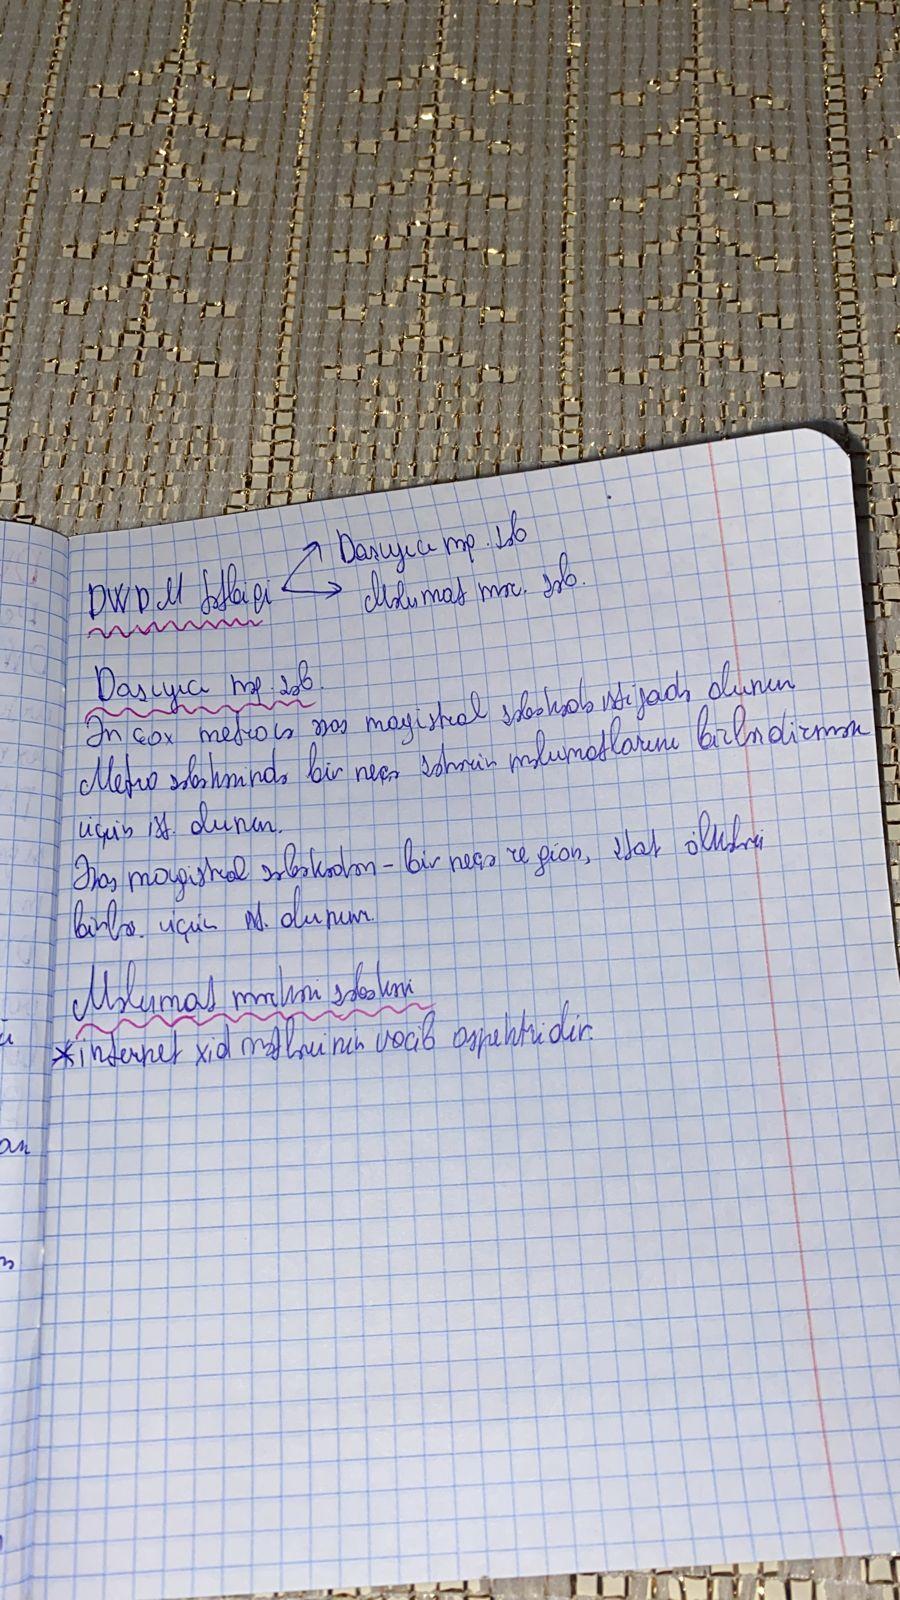 DWDM tətbiqi
Daşıyıcı mə. şəb
Məlumat mər. şəb.
Daşıyıcı şəb.
Ən çox metro və əsas magistral şəbəkədə istifadə olunur
Metro şəbəkəsində bir neçə şəhərin məlumatlarını birləşdirmək
üçün ist. olunur.
Əsas magistral şəbəkədən - bir neçə region, ştat ölkələri
birlə. üçün ist. olunur.
Məlumat mərkəzi şəbəkəsi
*internet xidmətlərinin vacib aspektidir.